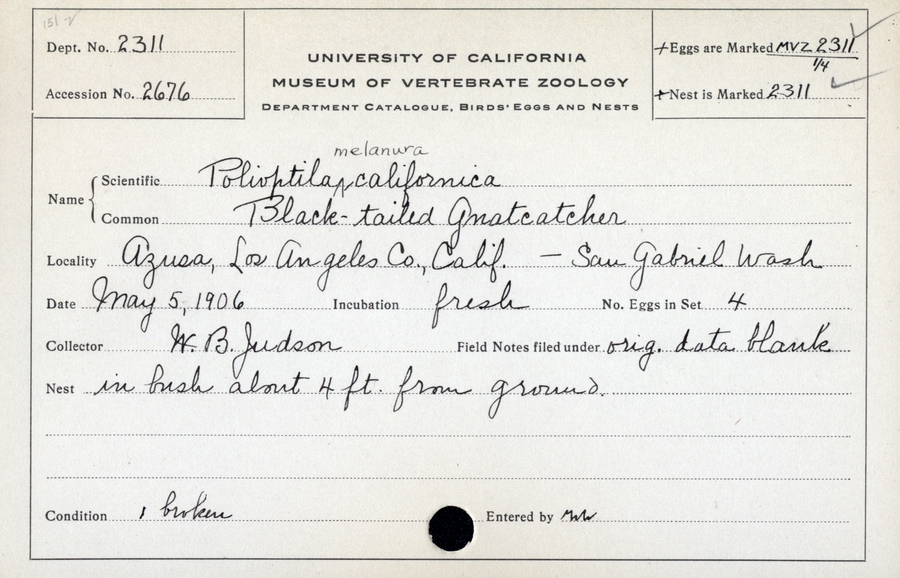 151-2
Dept. No. 2311
Accession No. 2676
UNIVERSITY OF CALIFORNIA
MUSEUM OF VERTEBRATE ZOOLOGY
DEPARTMENT CATALOGUE, BIRDS' EGGS AND NESTS
+Eggs are Marked MVZ 2311
1/4
+Nest is Marked 2311
melanura
Name
Scientific Polioptila ^ californica
Common Black-tailed Gnatcatcher
Locality Azusa, Los Angeles Co., Calif. — San Gabriel Wash
Date May 5, 1906 Incubation fresh No. Eggs in Set 4
Collector W. B. Judson Field Notes filed under orig. data blank
Nest in bush about 4 ft. from ground.
Condition 1 broken Entered by